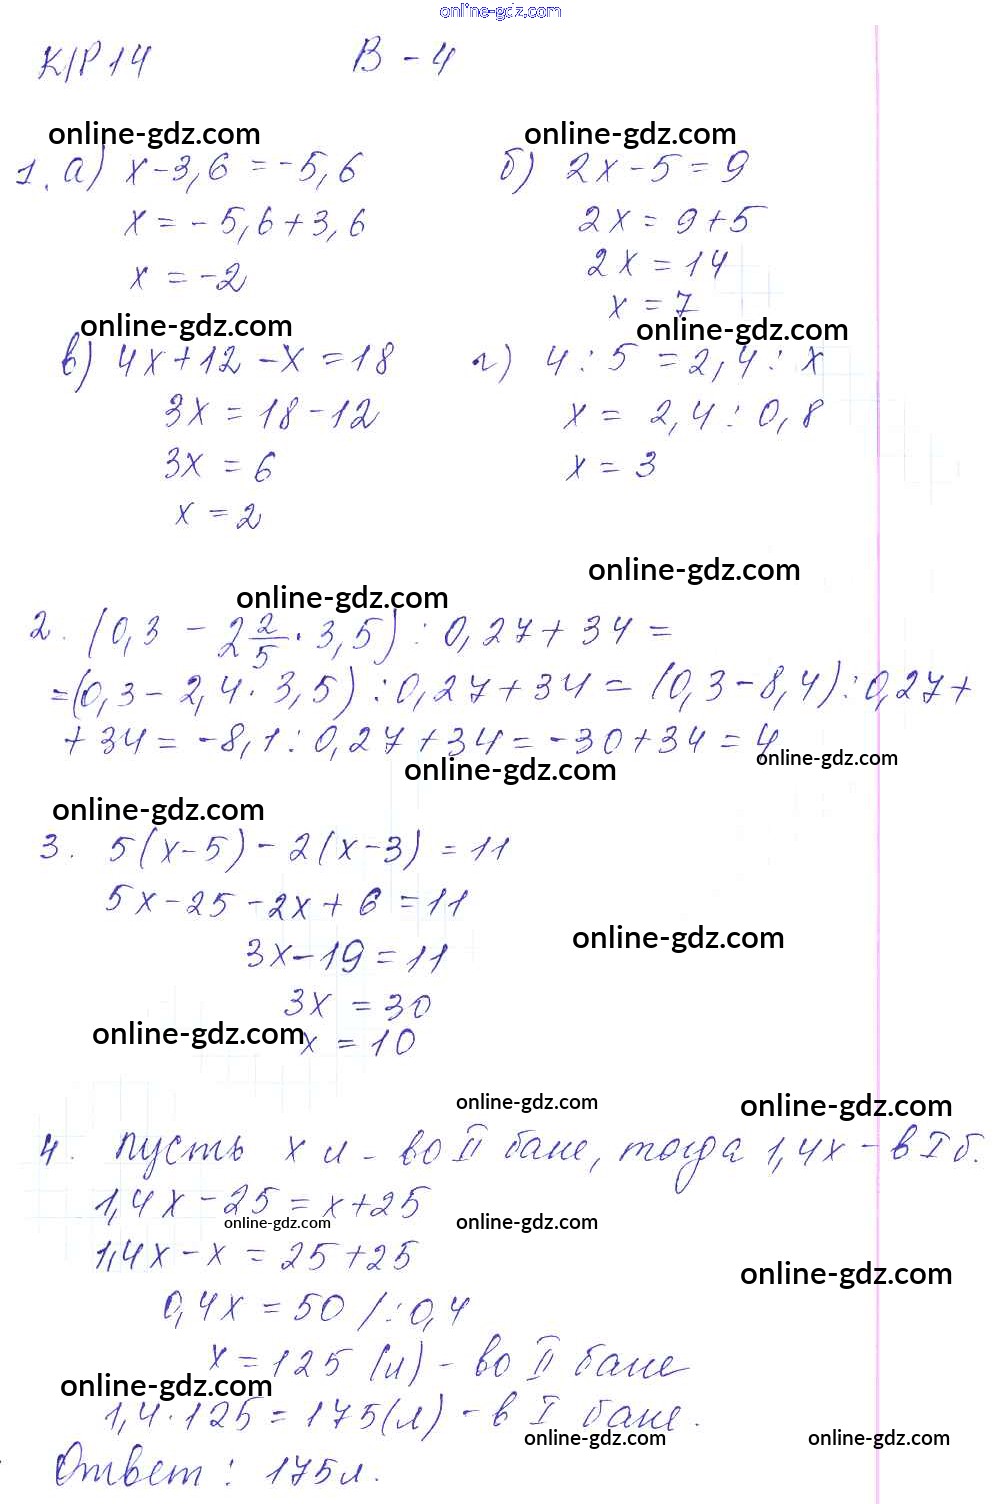 online-gdz.com
К/Р 14 В - 4
online-gdz.com online-gdz.com
1. а) x - 3,6 = -5,6 б) 2x - 5 = 9
x = -5,6 + 3,6 2x = 9 + 5
x = -2 2x = 14
x = 7
online-gdz.com online-gdz.com
в) 4x + 12 - x = 18 г) 4 : 5 = 2,4 : x
3x = 18 - 12 x = 2,4 : 0,8
3x = 6 x = 3
x = 2
online-gdz.com
online-gdz.com
2. (0,3 - 2 2/5 · 3,5) : 0,27 + 34 =
= (0,3 - 2,4 · 3,5) : 0,27 + 34 = (0,3 - 8,4) : 0,27 +
+ 34 = -8,1 : 0,27 + 34 = -30 + 34 = 4
online-gdz.com online-gdz.com
online-gdz.com
3. 5(x - 5) - 2(x - 3) = 11
5x - 25 - 2x + 6 = 11
online-gdz.com
3x - 19 = 11
3x = 30
online-gdz.com
x = 10
online-gdz.com online-gdz.com
4. Пусть x л - во II баке, тогда 1,4x - в I б.
1,4x - 25 = x + 25
online-gdz.com online-gdz.com
1,4x - x = 25 + 25
online-gdz.com
0,4x = 50 / : 0,4
x = 125 (л) - во II баке
online-gdz.com
1,4 · 125 = 175 (л) - в I баке.
online-gdz.com online-gdz.com
Ответ: 175 л.